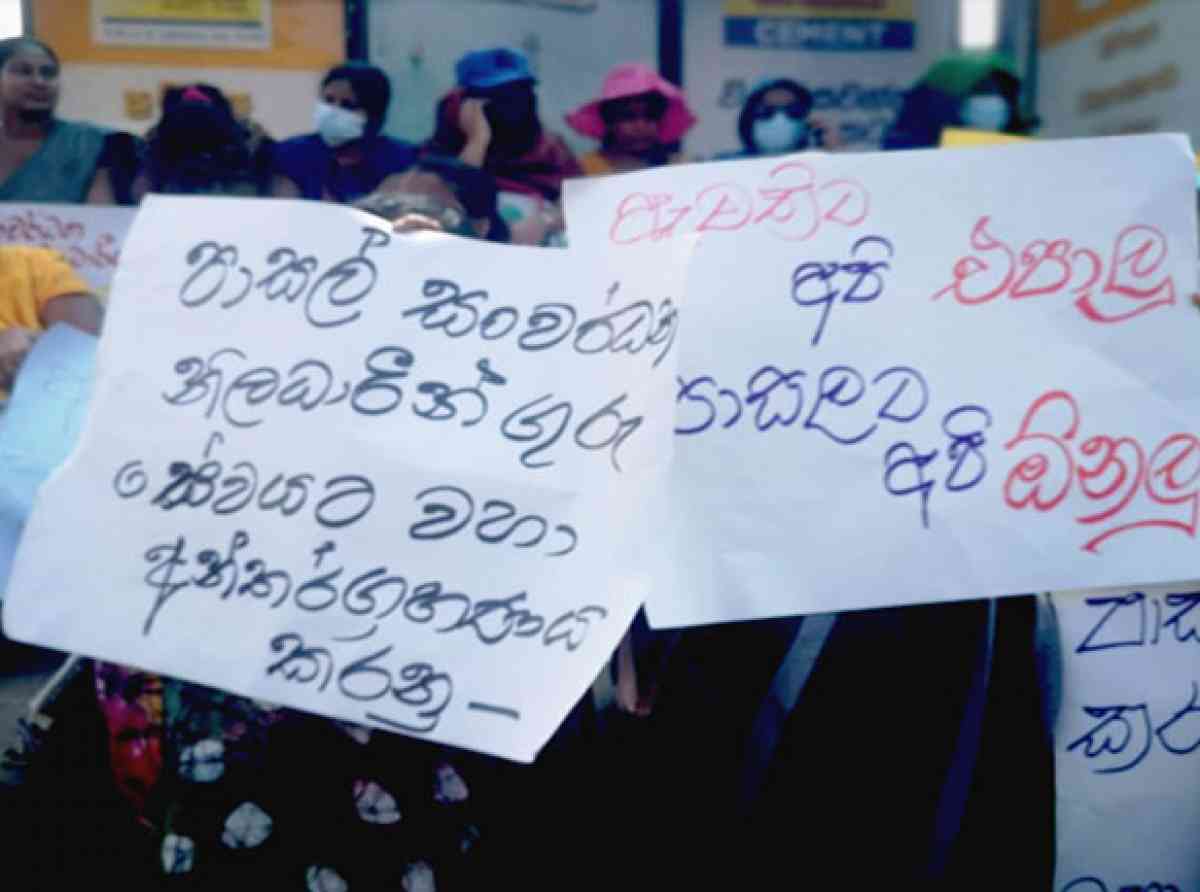 CEMENT
පාසල් සංවර්ධන
නිලධාරීන් ගුරු
සේවයට වහා
අන්තර්ග්‍රහණය
කරනු –
ඇමතිට
අපි එපාලු
පාසලට
අපි ඕනලු
පාස